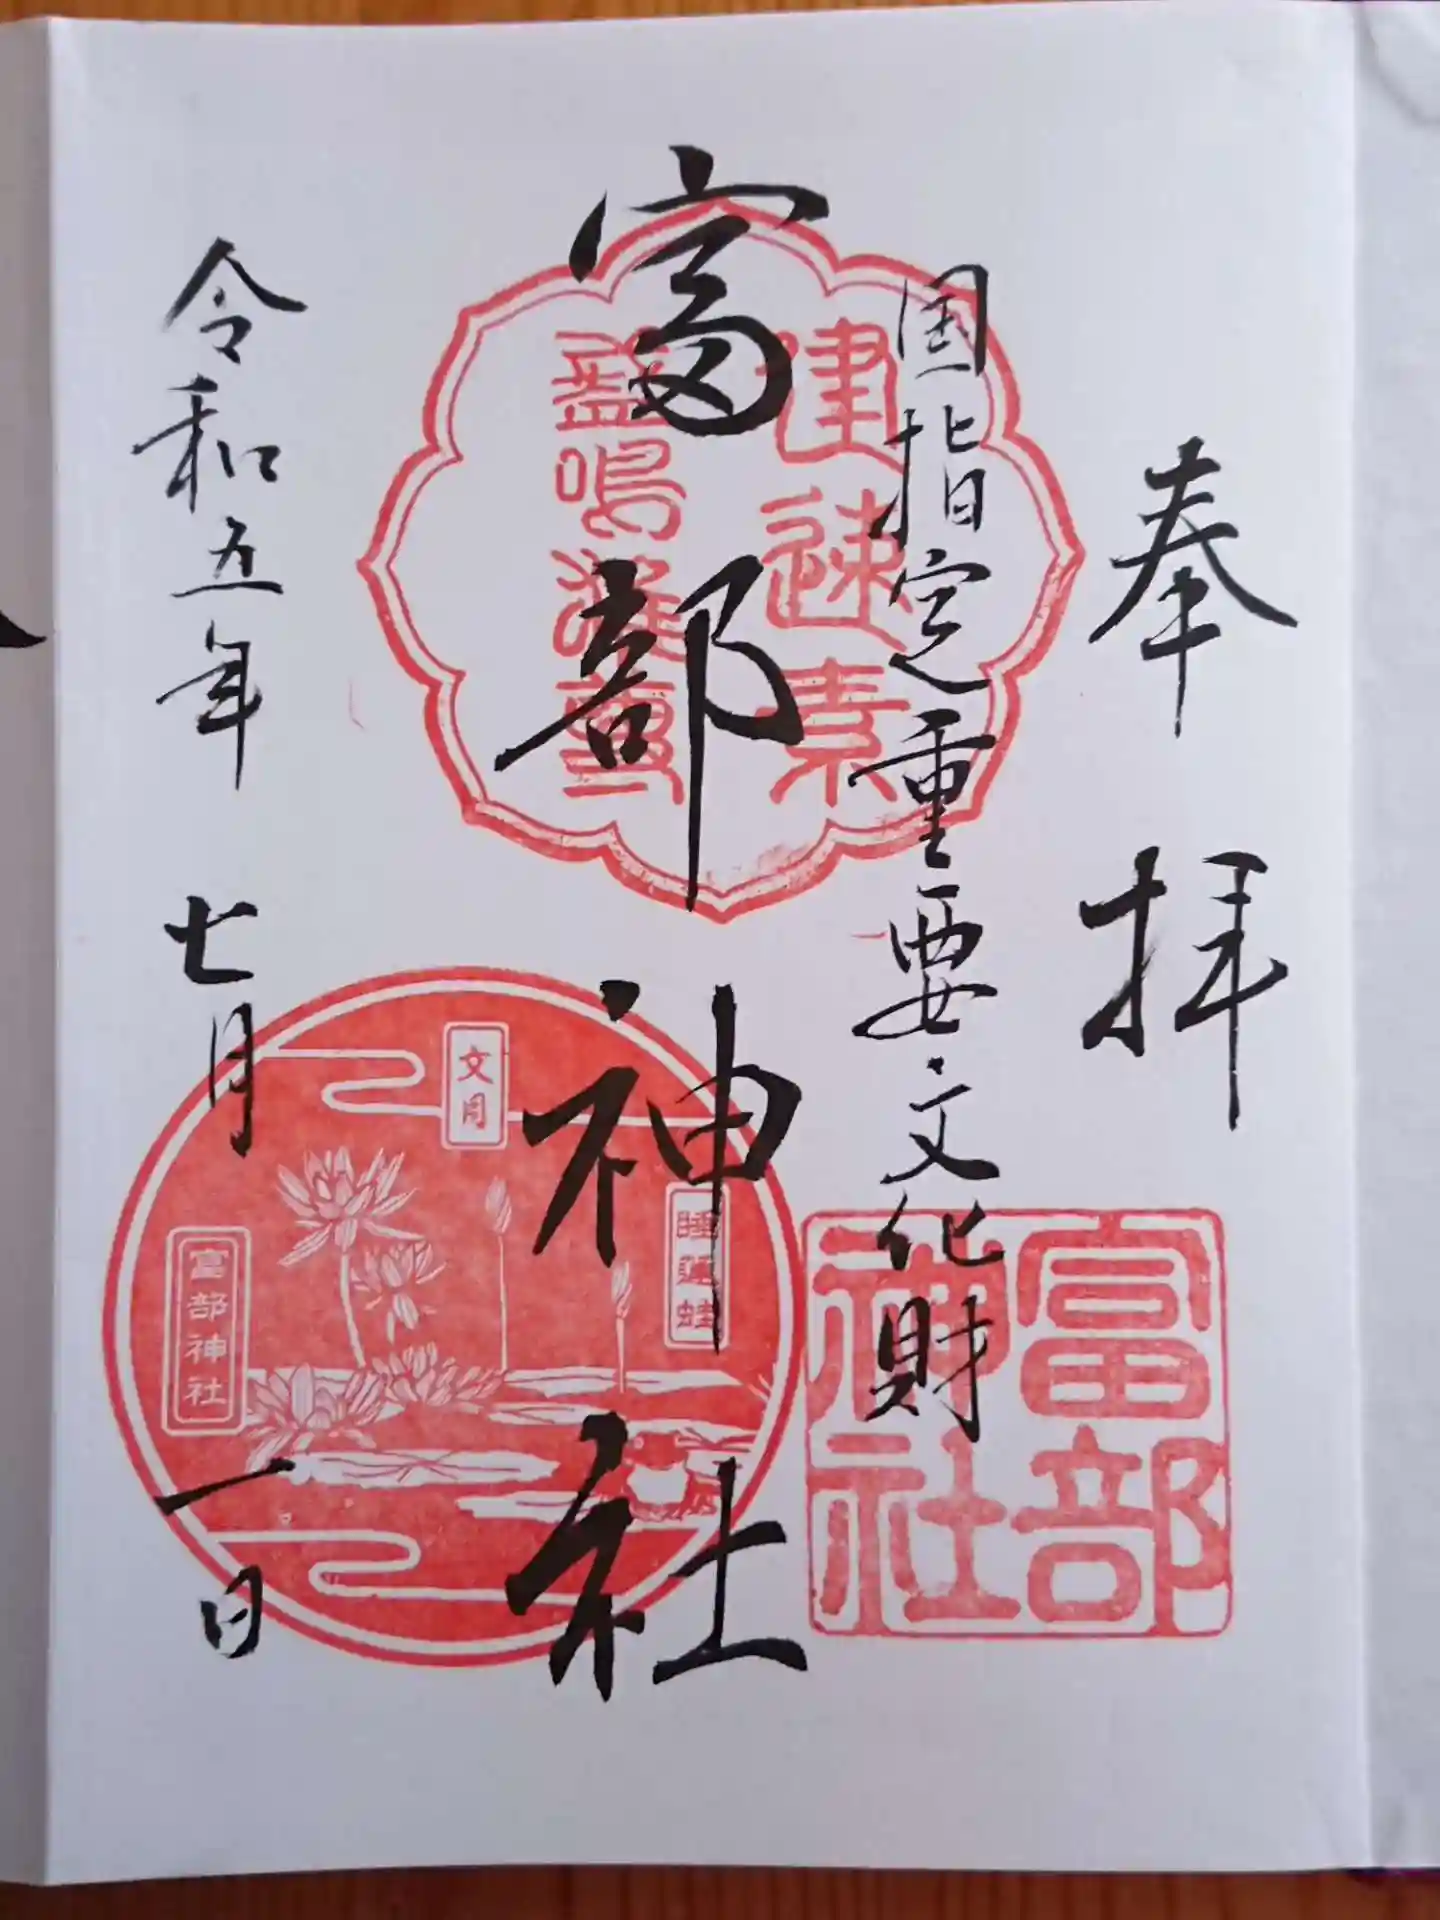 奉拝
国指定重要文化財
富部神社
令和五年 七月一日
建速素
盞嗚進雄尊
富部
神社
文月
睡蓮蛙
富部神社